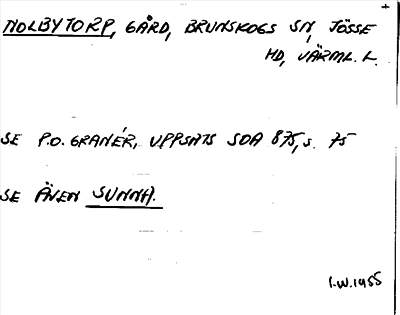 NOLBYTORP, GÅRD, BRUNSKOGS SN, JÖSSE
HD, VÄRML. L.
SE P.O. GRANÉR, UPPSATS SOA 875, S. 75
SE ÄVEN SUNNA.
I.W. 1955